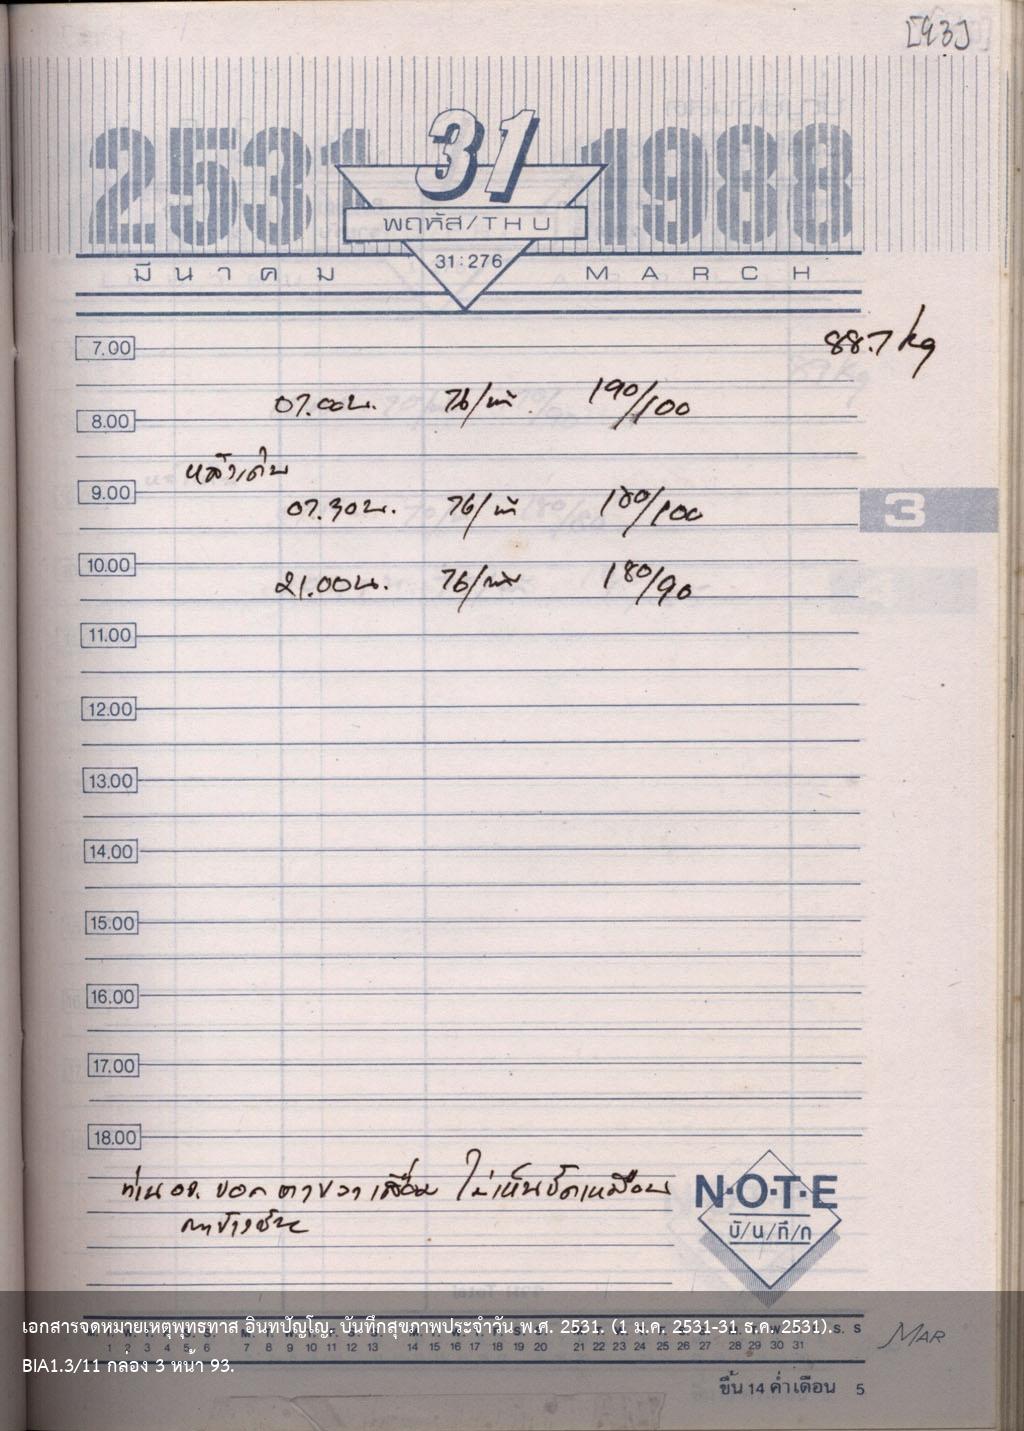 [93]
2531 31 1988
พฤหัส/THU
31:276
มีนาคม MARCH
88.7 kg
7.00
07.00น. 76/นาที 190/100
8.00
หลังเดิน
9.00
07.30น. 76/นาที 180/100
3
10.00
21.00น. 76/นาที 180/90
11.00
12.00
13.00
14.00
15.00
16.00
17.00
18.00
ท่าน อจ. บอก ตาขวาเสื่อม ไม่เห็นชัดเหมือน
N·O·T·E
บั/น/ทึ/ก
เอกสารจดหมายเหตุพุทธทาส อินทปัญโญ. บันทึกสุขภาพประจำวัน พ.ศ. 2531. (1 ม.ค. 2531-31 ธ.ค. 2531).
S. S
1 2 3 4 5 6 7 8 9 10 11 12 13 14 15 16 17 18 19 20 21 22 23 24 25 26 27 28 29 30 31
MAR
BIA1.3/11 กล่อง 3 หน้า 93.
ขึ้น 14 ค่ำ เดือน 5